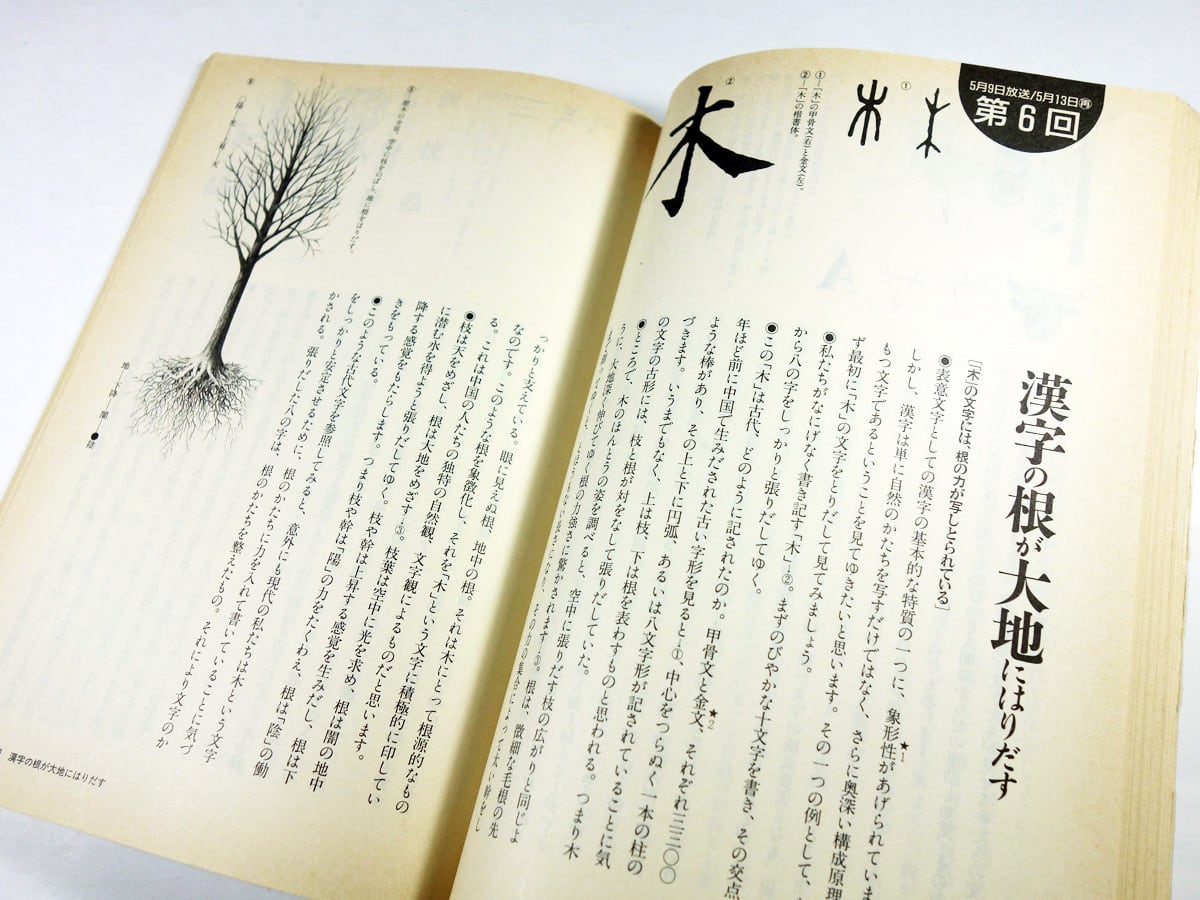 5月9日放送/5月13日㊥
第6回
①
②
木
①―「木」の甲骨文(右)と金文(左)。
②―「木」の楷書体。
漢字の根が大地にはりだす
[「木」の文字には、根の力が写しとられている]
◉表意文字としての漢字の基本的な特質の一つに、象形性★1があげられていま
しかし、漢字は単に自然のかたちを写すだけではなく、さらに奥深い構成原理
もつ文字であるということを見てゆきたいと思います。その一つの例として、
ず最初に「木」の文字をとりだして見てみましょう。
◉私たちがなにげなく書き記す「木」―②。まずのびやかな十文字を書き、その交点
から八の字をしっかりと張りだしてゆく。
◉この「木」は古代、どのように記されたのか。甲骨文と金文★2、それぞれ三三〇〇
年ほど前に中国で生みだされた古い字形を見ると―①、中心をつらぬく一本の柱の
ような棒があり、その上と下に円弧、あるいは八文字形が記されていることに気
づきます。いうまでもなく、上は枝、下は根を表わすものと思われる。つまり木
の文字の古形には、枝と根が対をなして張りだしていた。
◉ところで、木のほんとうの姿を調べると、空中に張りだす枝の広がりと同じよ
うに、大地深く伸びてゆく根の力強さに驚かされます―③。根は、微細な毛根の先
その力の集合によって太い幹をし
つかりと支えている。眼に見えぬ根、地中の根。それは木にとって根源的なもの
なのです。
る。これは中国の人たちの独特の自然観、文字観によるものだと思います。
このような根を象徴化し、それを「木」という文字に積極的に印してい
◉枝は天をめざし、根は大地をめざす―③。枝葉は空中に光を求め、根は闇の地中
に潜む水を得ようと張りだしてゆく。枝や幹は上昇する感覚を生みだし、根は下
降する感覚をもたらします。つまり枝や幹は「陽」の力をたくわえ、根は「陰」の働
きをもっている。
◉このような古代文字を参照してみると、意外にも現代の私たちは木という文字
をしっかりと安定させるために、根のかたちに力を入れて書いていることに気づ
かされる。張りだした八の字は、根のかたちを整えたもの。それにより文字のか
③―樹木の全容。空中に枝をのばし、地に根をはりだす。
③
地―下降―闇―●陰
漢字の根が大地にはりだす